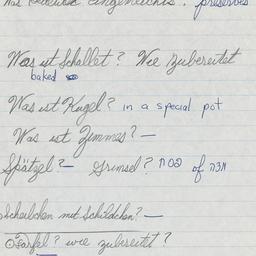 Was eingemachtes? preserves
Was ist Schallet? Wie zubereitet
baked
Was ist Kugel? in a special pot
Was ist Zimmas? —
Spätzel? — Grimsel? of
Scheibchen mit Schildchen? —
Farfel? wie zubereitet?